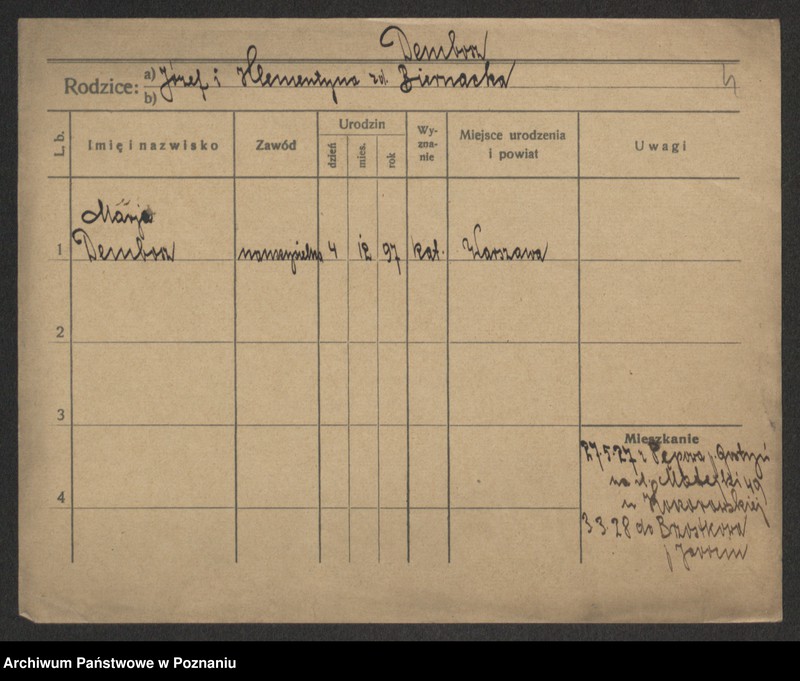 Dembou
Rodzice: a) Józef i Klementyna zd. Biernacka
b)
L. b. Imię i nazwisko Zawód Urodzin dzień mies. rok Wy-zna-nie Miejsce urodzenia i powiat Uwagi
Marja
1 Dembou 4 12 97 kat. Warszawa
2
3
Mieszkanie
27.5.27 z Pępowa p. Gostyń
na ul. Matejki 49
u Kokorowskiej
4
3.3.28 do Brzostkowa
p. Jarocin
Archiwum Państwowe w Poznaniu